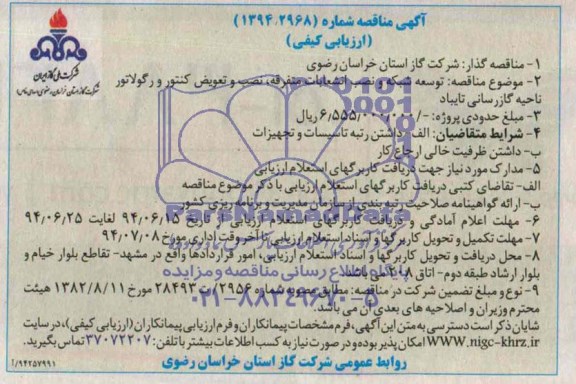 آگهی مناقصه شماره (۱۳۹۴،۲۹۶۸)
(ارزیابی کیفی)
شرکت ملی گاز ایران
۱- مناقصه گذار: شرکت گاز استان خراسان رضوی
۲- موضوع مناقصه: توسعه شبکه و نصب انشعابات متفرقه، نصب و تعویض کنتور و رگولاتور
ناحیه گازرسانی تایباد
۳- مبلغ حدودی پروژه: -/۶،۵۵۵،۰۰۰،۰۰۰ ریال
۴- شرایط متقاضیان: الف- داشتن رتبه تاسیسات و تجهیزات
ب- داشتن ظرفیت خالی ارجاع کار
۵- مدارک مورد نیاز جهت دریافت کاربرگهای استعلام ارزیابی
الف- تقاضای کتبی دریافت کاربرگهای استعلام ارزیابی با ذکر موضوع مناقصه
ب- ارائه گواهینامه صلاحیت رتبه بندی از سازمان مدیریت و برنامه ریزی کشور
۶- مهلت اعلام آمادگی و دریافت کاربرگهای استعلام ارزیابی از تاریخ ۹۴/۰۶/۱۵ لغایت ۹۴/۰۶/۲۵
۷- مهلت تکمیل و تحویل کاربرگها و اسناد استعلام ارزیابی: تا آخر وقت اداری مورخ ۹۴/۰۷/۰۸
۸- محل دریافت و تحویل کاربرگها و اسناد استعلام ارزیابی، امور قراردادها واقع در مشهد- تقاطع بلوار خیام و
بلوار ارشاد طبقه دوم- اتاق ۲۰۸ می باشد.
۹- نوع و مبلغ تضمین شرکت در مناقصه: مطابق مصوبه شماره ۲۹۵۶/ت ۲۸۴۹۳ مورخ ۱۳۸۲/۸/۱۱ هیئت
محترم وزیران و اصلاحیه های بعدی آن می باشد.
شایان ذکر است دسترسی به متن این آگهی، فرم مشخصات پیمانکاران و فرم ارزیابی پیمانکاران (ارزیابی کیفی)، در سایت
WWW.nigc-khrz.ir امکان پذیر بوده و در صورت نیاز به کسب اطلاعات بیشتر با تلفن: ۳۷۰۷۲۲۰۷ تماس بگیرید.
روابط عمومی شرکت گاز استان خراسان رضوی
۹۴۲۵۷۹۹۱/آ
ParsNamadData
پایگاه اطلاع رسانی مناقصه و مزایده
۰۲۱-۸۸۳۴۹۶۷۰-۵